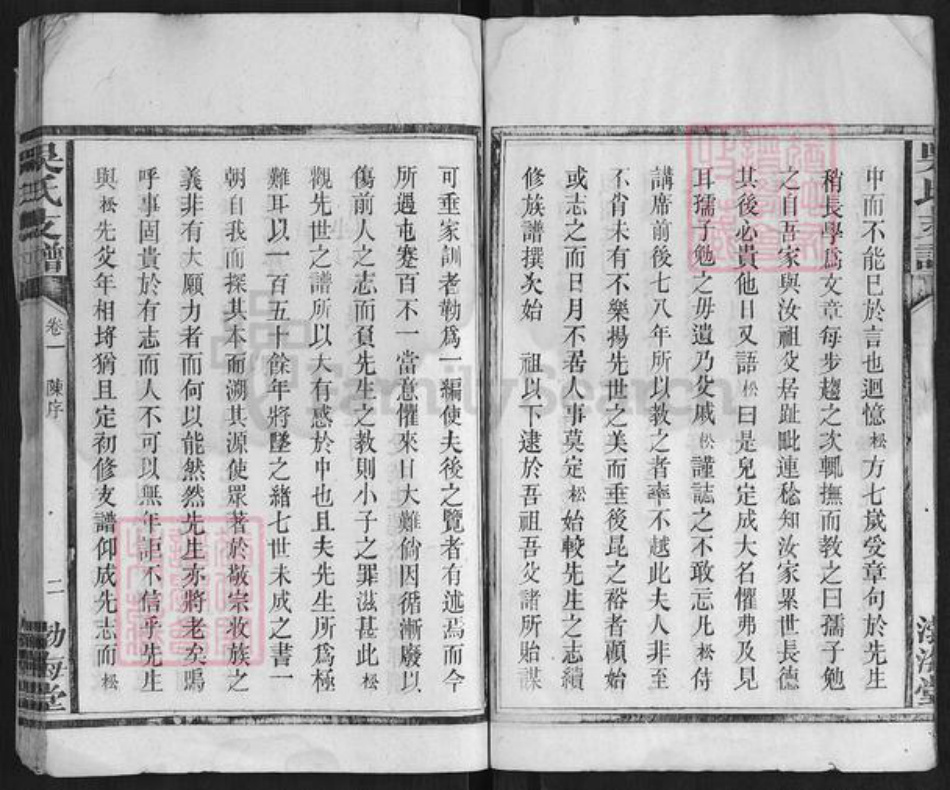 中而不能已於言也迴憶松方七歲受章句於先生
稍長學爲文章每步趨之次輒撫而教之曰孺子勉
之自吾家與汝祖父居趾毗連稔知汝家累世長德
其後必貴他日又語松曰是兒定成大名懼弗及見
耳孺子勉之毋遺乃父戚松謹誌之不敢忘凡松侍
講席前後七八年所以教之者率不越此夫人非至
不肖未有不樂揚先世之美而垂後昆之裕者顧始
或志之而日月不居人事莫定松始較先生之志續
修族譜撰次始 祖以下逮於吾祖吾父諸所貽謀
吳氏支譜
卷一 陳序
二
勃海堂
可垂家訓者勒爲一編使夫後之覽者有述焉而今
所遇屯蹇百不一當意懼來日大難倘因循漸廢以
傷前人之志而負先生之教則小子之罪滋甚此松
觀先世之譜所以大有感於中也且夫先生所爲極
難耳以一百五十餘年將墜之緒七世未成之書一
朝自我而探其本而溯其源使眾著於敬宗收族之
義非有大願力者而何以能然然先生亦將老矣嗚
呼事固貴於有志而人不可以無年詎不信乎先生
與松先父年相埒猶且定初修支譜仰成先志而松